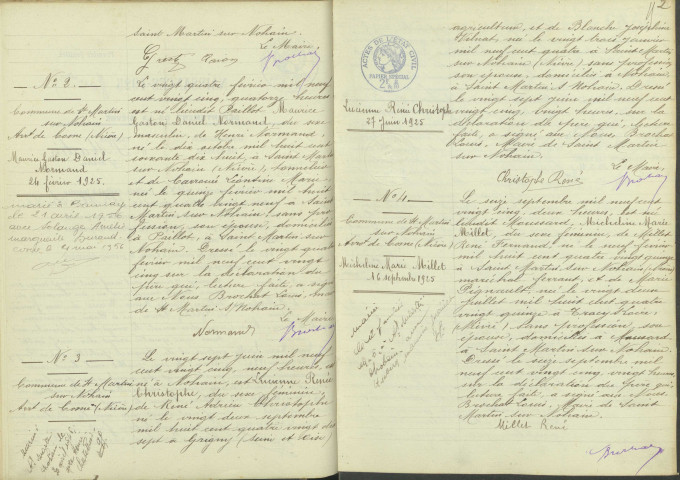 Saint Martin sur Nohain.
Le Maire,
Brochet
— Nº 2. —
Commune de St Martin
sur Nohain
Arrt de Cosne (Nièvre)
Maurice Gaston Daniel
Normand
24 février 1925.
marié à
le 21 avril 1956
avec
Le vingt quatre février mil neuf
cent vingt cinq, quatorze heures
est né Maurice
Gaston Daniel Normand, du sexe
masculin, de Henri Normand,
né le dix octobre mil huit cent
soixante dix huit, à Saint Martin
sur Nohain (Nièvre),
et de Léontine Marie
née le quinze février mil huit
cent quatre vingt neuf à Saint
Martin sur Nohain, sans pro
fession, son épouse, domiciliés
à Paillot, à Saint Martin sur
Nohain. Dressé le vingt quatre
février mil neuf cent vingt
cinq sur la déclaration du
père qui, lecture faite, a signé
avec Nous Brochet Louis, Maire
de St Martin sur Nohain
Le Maire
Normand
Brochet
— Nº 3 —
Commune de St Martin
sur Nohain
Arrt de Cosne (Nièvre)
Le vingt sept juin mil neuf
cent vingt cinq, neuf heures, est
né à Nohain, Lucienne Renée
Christophe, du sexe féminin,
de René Adrien Christophe
né le vingt deux septembre
mil huit cent quatre vingt dix
sept à Grigny (Seine et Oise)
2
ACTES DE L'ÉTAT CIVIL
PAPIER SPÉCIAL
Lucienne Renée Christophe
27 juin 1925
agriculteur, et de Blanche Joséphine
née le vingt trois janvier
mil neuf cent quatre à Saint Martin
sur Nohain (Nièvre) sans profession
son épouse, domiciliés à Nohain
à Saint Martin s/ Nohain. Dressé
le vingt sept juin mil neuf cent
vingt cinq, vingt heures, sur la
déclaration du père qui, lecture
faite, a signé avec Nous Brochet
Louis, Maire de Saint Martin
sur Nohain.
Le Maire,
Christophe René
Brochet
— Nº 4 —
Commune de St Martin
sur Nohain
Arrt de Cosne (Nièvre)
Micheline Marie Millot
16 septembre 1925
Le seize septembre mil neuf cent
vingt cinq, deux heures, est née
Micheline Marie
Millot, du sexe féminin, de Millot
René Fernand, né le neuf février
mil huit cent quatre vingt quinze
à Saint Martin sur Nohain (Nièvre)
maréchal ferrant, et de Marie
née le vingt deux
juillet mil huit cent quatre
vingt quinze à Tracy Loire
(Nièvre) sans profession, son
épouse, domiciliés à
à Saint Martin sur Nohain.
Dressé le seize septembre mil
neuf cent vingt cinq, vingt heures
sur la déclaration du père qui,
lecture faite, a signé avec Nous
Brochet Louis, Maire de Saint
Martin sur Nohain.
Millot René
Brochet